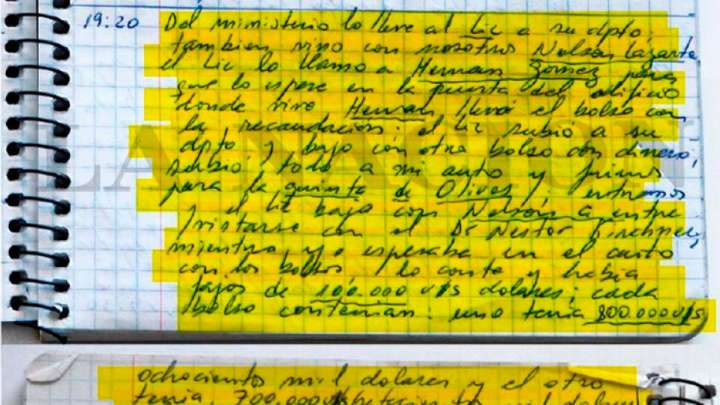 19:20 Del ministerio lo lleve al Lic a su dpto,
tambien vino con nosotros Nelson Lazarte
el Lic lo llamo a Hernan Gomez para
que lo espere en la puerta del edificio
donde vive Hernan llevó el bolso con
la recaudacion; el Lic subio a su
dpto y bajo con otro bolso con dinero,
subió todo a mi auto y fuimos
para la quinta de Olivos, entramos
y el Lic bajo con Nelson a entre
vistarse con el Dr Nestor Kirchner,
mientras yo esperaba en el auto
con los bolsos, lo conte y habia
fajos de 100.000 u$s dolares; cada
bolso contenian: uno tenia 800.000 u$s
ochocientos mil dolares y el otro
tenia 700.000 u$s
LA NACION